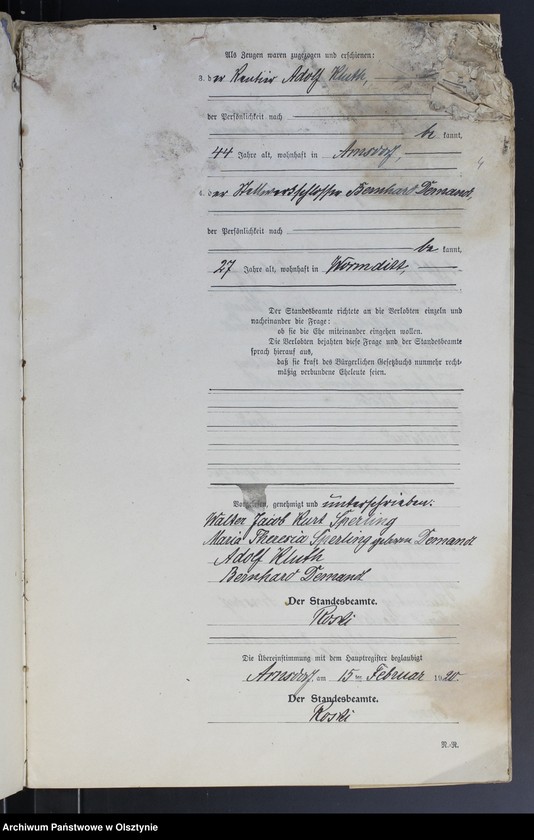 Als Zeugen waren zugezogen und erschienen:
3. der Rentier Adolf Kluth,
der Persönlichkeit nach
be kannt,
44 Jahre alt, wohnhaft in Arnsdorf,
4. der Bernhard Demand,
der Persönlichkeit nach
be kannt,
27 Jahre alt, wohnhaft in Wormditt,
Der Standesbeamte richtete an die Verlobten einzeln und
nacheinander die Frage:
ob sie die Ehe miteinander eingehen wollen.
Die Verlobten bejahten diese Frage und der Standesbeamte
sprach hierauf aus,
daß sie kraft des Bürgerlichen Gesetzbuchs nunmehr recht-
mäßig verbundene Eheleute seien.
Vorgelesen, genehmigt und unterschrieben.
Walter Jacob Kurt Sperling
Maria Theresia Sperling geborene Demand
Adolf Kluth
Bernhard Demand
Der Standesbeamte.
Roski
Die Übereinstimmung mit dem Hauptregister beglaubigt
Arnsdorf, am 15 ten Februar 1920.
Der Standesbeamte.
Roski
R.-R.
Archiwum Państwowe w Olsztynie